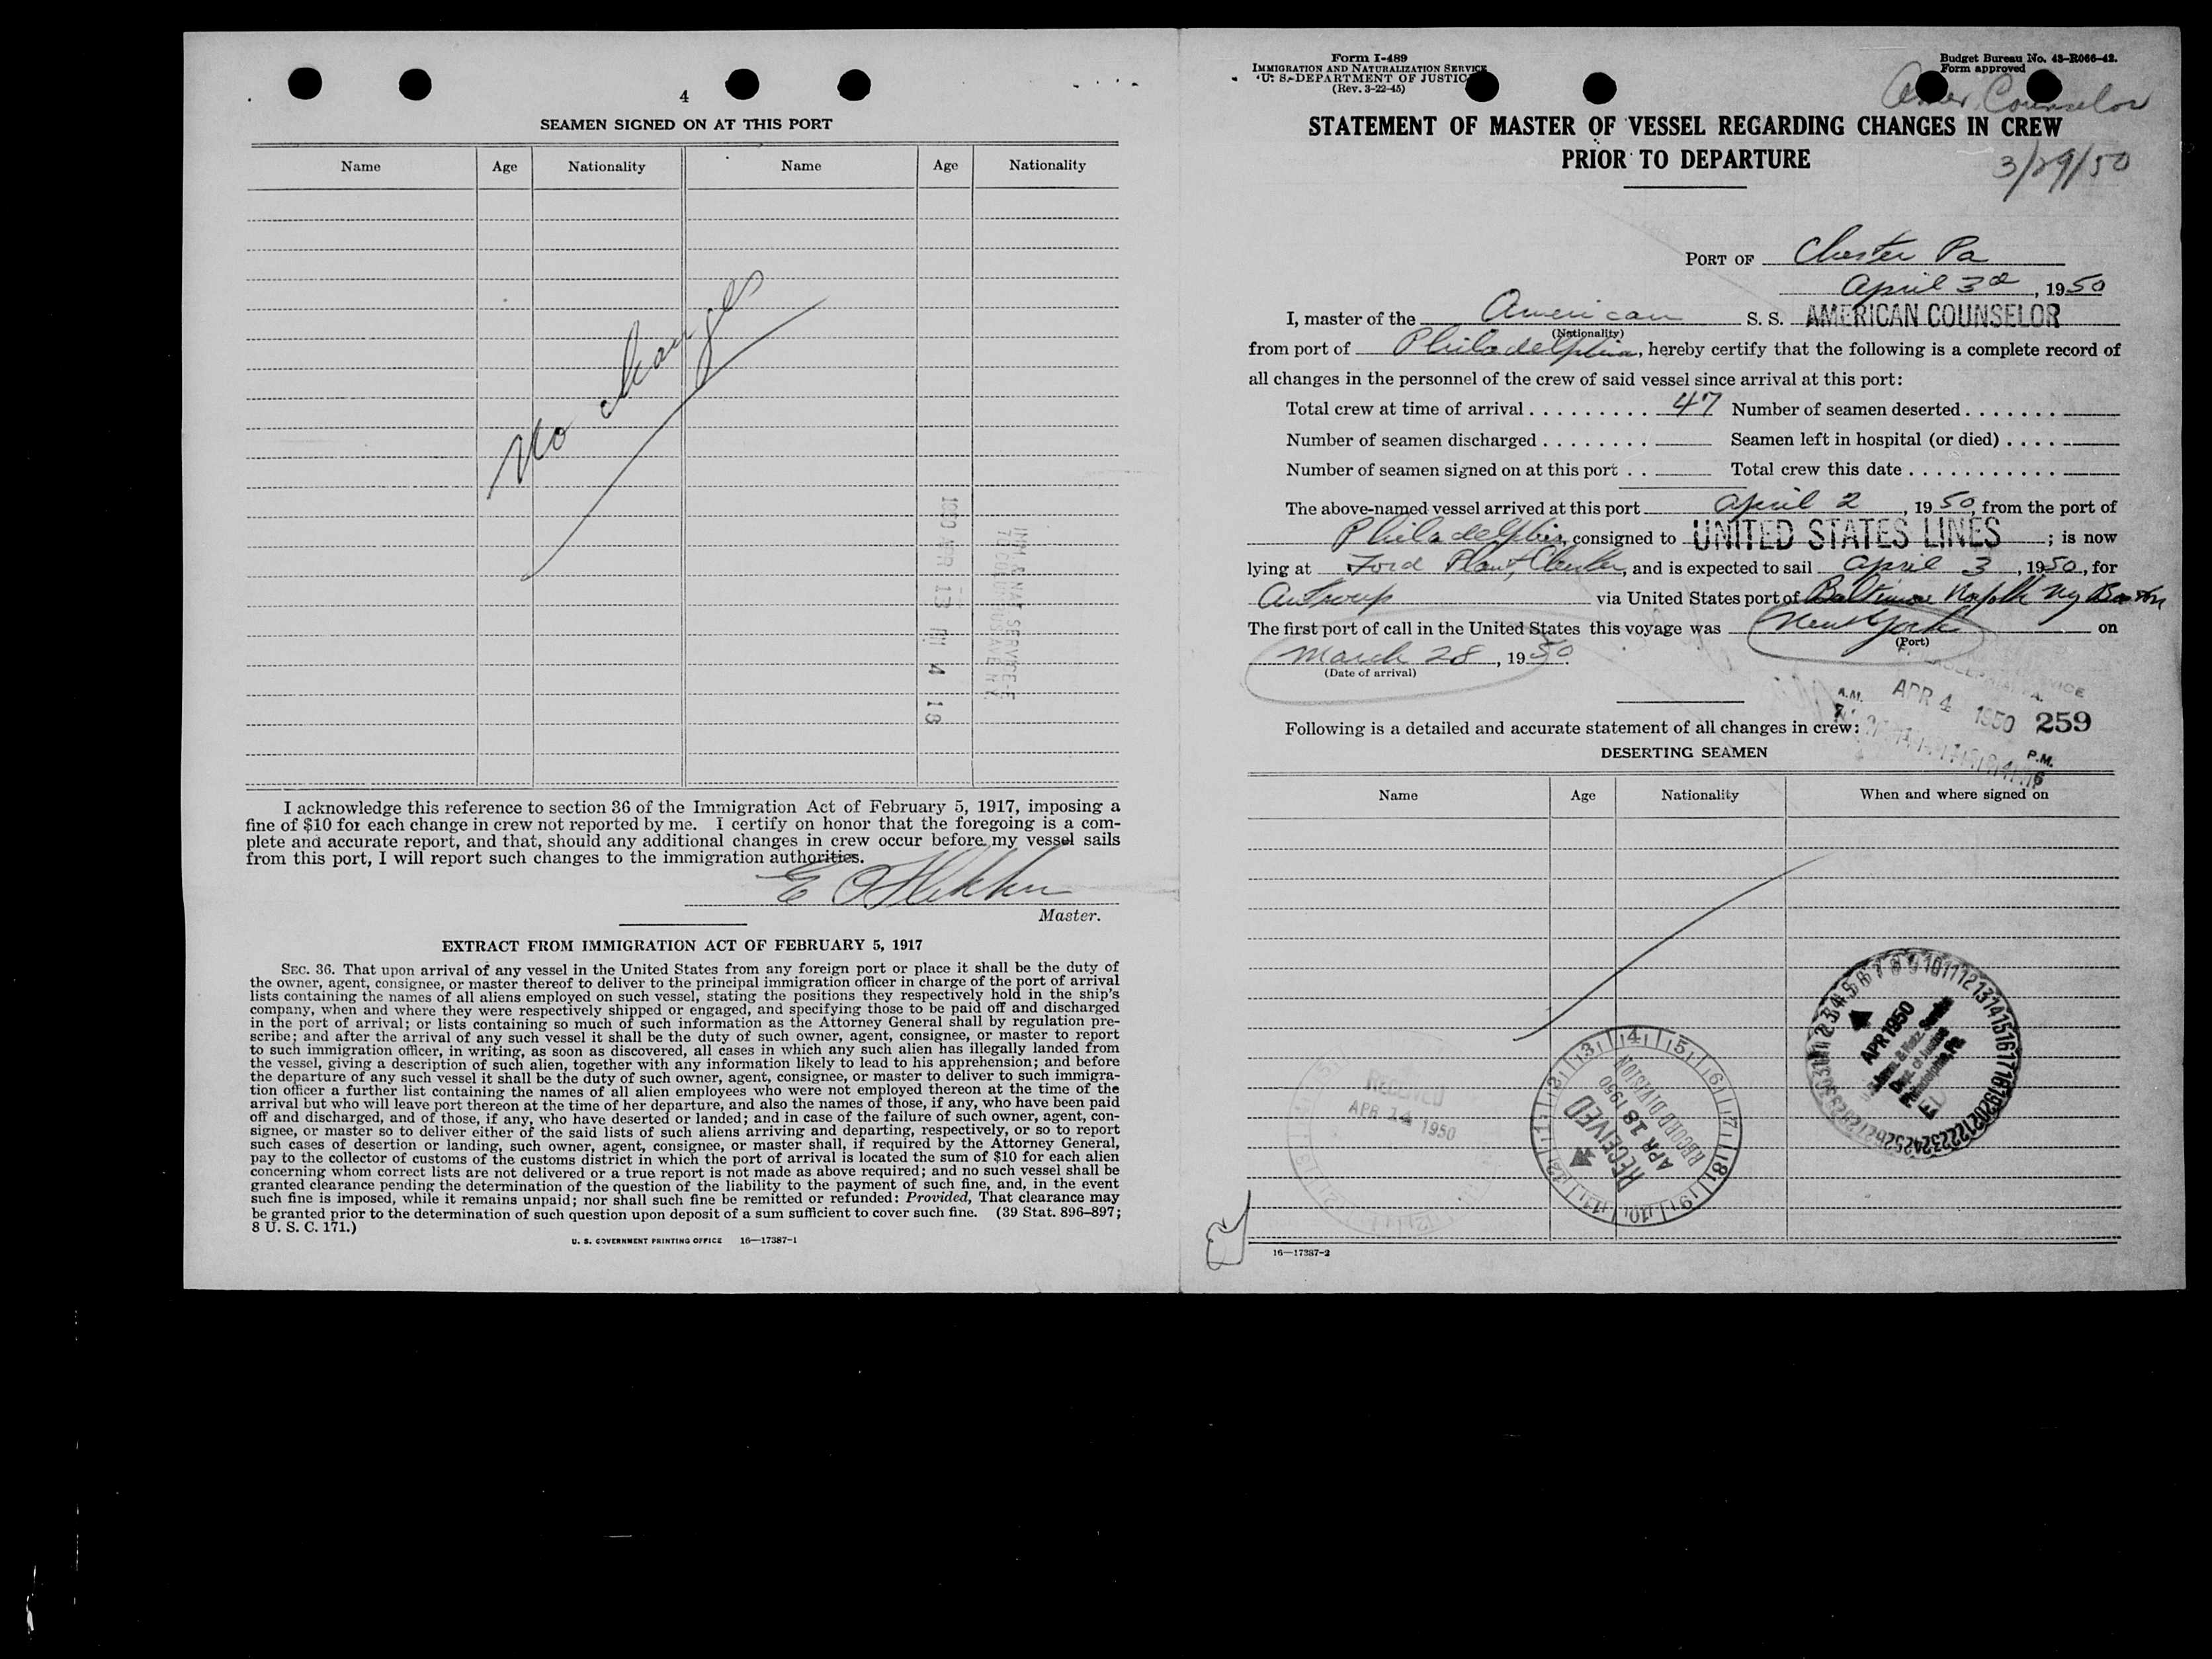 4
SEAMEN SIGNED ON AT THIS PORT
Name Age Nationality Name Age Nationality
No changes
1950 APR 13 PM 4 18
I acknowledge this reference to section 36 of the Immigration Act of February 5, 1917, imposing a
fine of $10 for each change in crew not reported by me. I certify on honor that the foregoing is a com-
plete and accurate report, and that, should any additional changes in crew occur before my vessel sails
from this port, I will report such changes to the immigration authorities.
Master.
EXTRACT FROM IMMIGRATION ACT OF FEBRUARY 5, 1917
SEC. 36. That upon arrival of any vessel in the United States from any foreign port or place it shall be the duty of
the owner, agent, consignee, or master thereof to deliver to the principal immigration officer in charge of the port of arrival
lists containing the names of all aliens employed on such vessel, stating the positions they respectively hold in the ship's
company, when and where they were respectively shipped or engaged, and specifying those to be paid off and discharged
in the port of arrival; or lists containing so much of such information as the Attorney General shall by regulation pre-
scribe; and after the arrival of any such vessel it shall be the duty of such owner, agent, consignee, or master to report
to such immigration officer, in writing, as soon as discovered, all cases in which any such alien has illegally landed from
the vessel, giving a description of such alien, together with any information likely to lead to his apprehension; and before
the departure of any such vessel it shall be the duty of such owner, agent, consignee, or master to deliver to such immigra-
tion officer a further list containing the names of all alien employees who were not employed thereon at the time of the
arrival but who will leave port thereon at the time of her departure, and also the names of those, if any, who have been paid
off and discharged, and of those, if any, who have deserted or landed; and in case of the failure of such owner, agent, con-
signee, or master so to deliver either of the said lists of such aliens arriving and departing, respectively, or so to report
such cases of desertion or landing, such owner, agent, consignee, or master shall, if required by the Attorney General,
pay to the collector of customs of the customs district in which the port of arrival is located the sum of $10 for each alien
concerning whom correct lists are not delivered or a true report is not made as above required; and no such vessel shall be
granted clearance pending the determination of the question of the liability to the payment of such fine, and, in the event
such fine is imposed, while it remains unpaid; nor shall such fine be remitted or refunded: Provided, That clearance may
be granted prior to the determination of such question upon deposit of a sum sufficient to cover such fine. (39 Stat. 896–897;
8 U. S. C. 171.)
U. S. GOVERNMENT PRINTING OFFICE 16—17387-1
Form I-489
IMMIGRATION AND NATURALIZATION SERVICE
U. S. DEPARTMENT OF JUSTICE
(Rev. 3-22-45)
Budget Bureau No. 43-R066-42.
Form approved
Amer. Counselor
STATEMENT OF MASTER OF VESSEL REGARDING CHANGES IN CREW
PRIOR TO DEPARTURE
3/29/50
PORT OF Chester Pa
April 3d, 1950
I, master of the American S. S. AMERICAN COUNSELOR
(Nationality)
from port of Philadelphia, hereby certify that the following is a complete record of
all changes in the personnel of the crew of said vessel since arrival at this port:
Total crew at time of arrival . . . . . . . . . 47 Number of seamen deserted . . . . . . .
Number of seamen discharged . . . . . . . . Seamen left in hospital (or died) . . . .
Number of seamen signed on at this port . . Total crew this date . . . . . . . . . . .
The above-named vessel arrived at this port April 2, 1950, from the port of
Philadelphia, consigned to UNITED STATES LINES; is now
lying at Ford Plant, Chester, and is expected to sail April 3, 1950, for
Antwerp via United States port of Baltimore Norfolk Ny Boston
The first port of call in the United States this voyage was New York on
(Port)
March 28, 1950.
(Date of arrival)
A.M. APR 4 1950 259
Following is a detailed and accurate statement of all changes in crew:
P.M.
DESERTING SEAMEN
Name Age Nationality When and where signed on
APR 1950
Imm. & Natz. Service
Dept. of Justice
Philadelphia, Pa.
RECEIVED
APR 14 1950
RECEIVED
APR 18 1950
RECORD DIVISION
16—17387-2